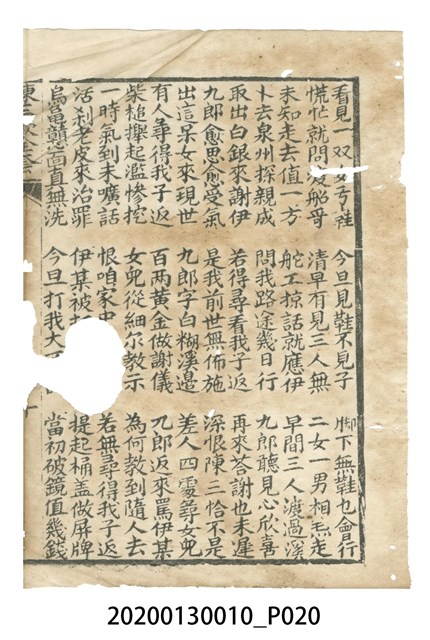 看見一双女弓鞋 今旦見鞋不見子 脚下無鞋也會行
慌忙就問渡船哥 清早有見三人無 二女一男相𤆬走
未知走去值一方 舵工掠話就應伊 早間三人渡過溪
卜去泉州探親成 問我路途幾日行 九郎聽見心歡喜
取出白銀來謝伊 若得尋看我子返 再來答謝也未遲
九郎愈思愈受氣 是我前世無佈施 深恨陳三恰不是
出這呆女來現世 九郎字白糊溪邊 差人四處尋女兜
有人尋得我子返 百両黄金做謝儀 九郎返來罵伊某
柴槌攑起濫慘挖 女兜從細尔教示 為何教到隨人去
一時氣到未嘪話 恨咱家 若無尋得我子返
活刹老皮來治罪 伊某被 提起桶盖做屏牌
烏龜戇面直無洗 今旦打我大 當初破鏡值幾錢
20200130010_P020